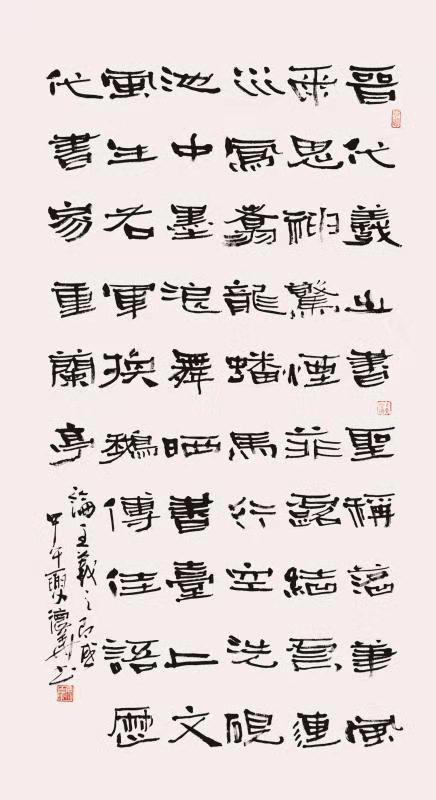 晉代羲之書聖稱落筆風
雨思神驚煙菲露結連
鳳翥龍蟠馬行空洗硯
池中墨浪舞晒書臺上文
風生右軍換鵝傳佳語歷
代書家重蘭亭
論王羲之有感
甲午德書